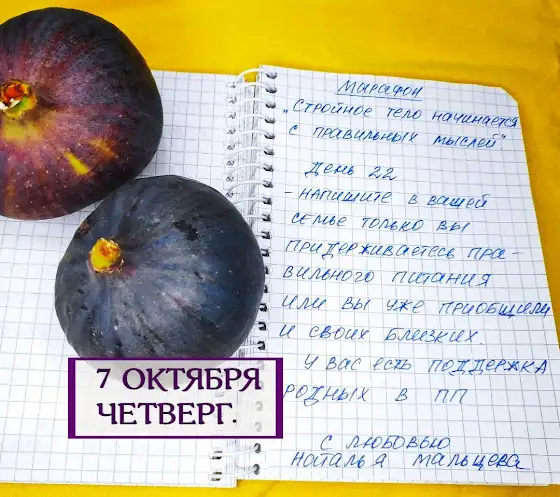 Марафон
„Стройное тело начинается
с правильных мыслей"
День 22
- напишите в вашей
семье только вы
придерживаетесь пра-
вильного питания
или вы уже приобщили
и своих близких.
У вас есть поддержка
родных в ПП
С любовью
Наталья Мальцева
7 ОКТЯБРЯ
ЧЕТВЕРГ.